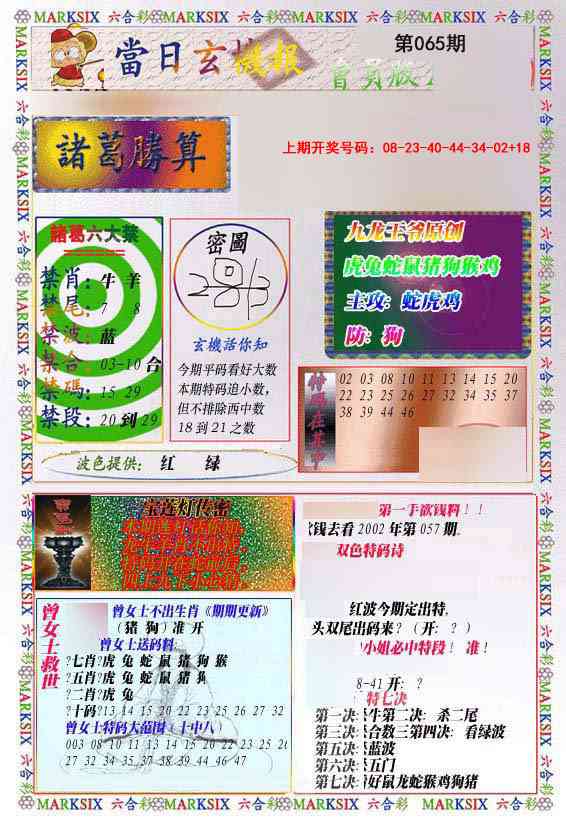 MARKSIX 六合彩 MARKSIX 六合彩 MARKSIX 六合彩 MARKSIX 六合彩 MARKSIX
當日玄機報
第065期
諸葛勝算
上期开奖号码：08-23-40-44-34-02+18
諸葛六大禁
禁肖：牛 羊
禁尾：7 8
禁波：蓝
禁合：03-10 合
禁碼：15 29
禁段：20 到 29
密圖
玄機活你知
今期平码看好大数
本期特码追小数，
但不排除西中数
18 到 21 之数
九龙王爷原创
虎兔蛇鼠猪狗猴鸡
主攻：蛇虎鸡
防：狗
02 03 08 10 11 13 14 15 20
22 23 25 26 27 32 34 35 37
38 39 44 46
波色提供： 红 绿
宝莲灯传密
曾女士救世
曾女士不出生肖《期期更新》
（猪 狗）准 开
曾女士送码料:
?七肖?虎 兔 蛇 鼠 猪 狗 猴
?五肖?虎 兔 蛇 鼠 猪 狗
?二肖?虎 兔
?十码?13 14 15 20 22 23 25 26 27 32
曾女士特码大范围〔十中八〕
003 08 10 11 13 14 15 20 22 23 25 26
27 32 34 35 37 38 39 44 46 47
第一手欲钱料！！
欲钱去看 2002 年第 057 期。
双色特码诗
红波今期定出特。
头双尾出码来？（开：？）
小姐必中特段！ 准！
8-41 开：？
特七决
第一决：牛第二决：杀二尾
第三决：合数三第四决：看绿波
第五决：蓝波
第六决：五门
第七决：好鼠龙蛇猴鸡狗猪
MARKSIX 六合彩 MARKSIX 六合彩 MARKSIX 六合彩 MARKSIX 六合彩 MARKSIX